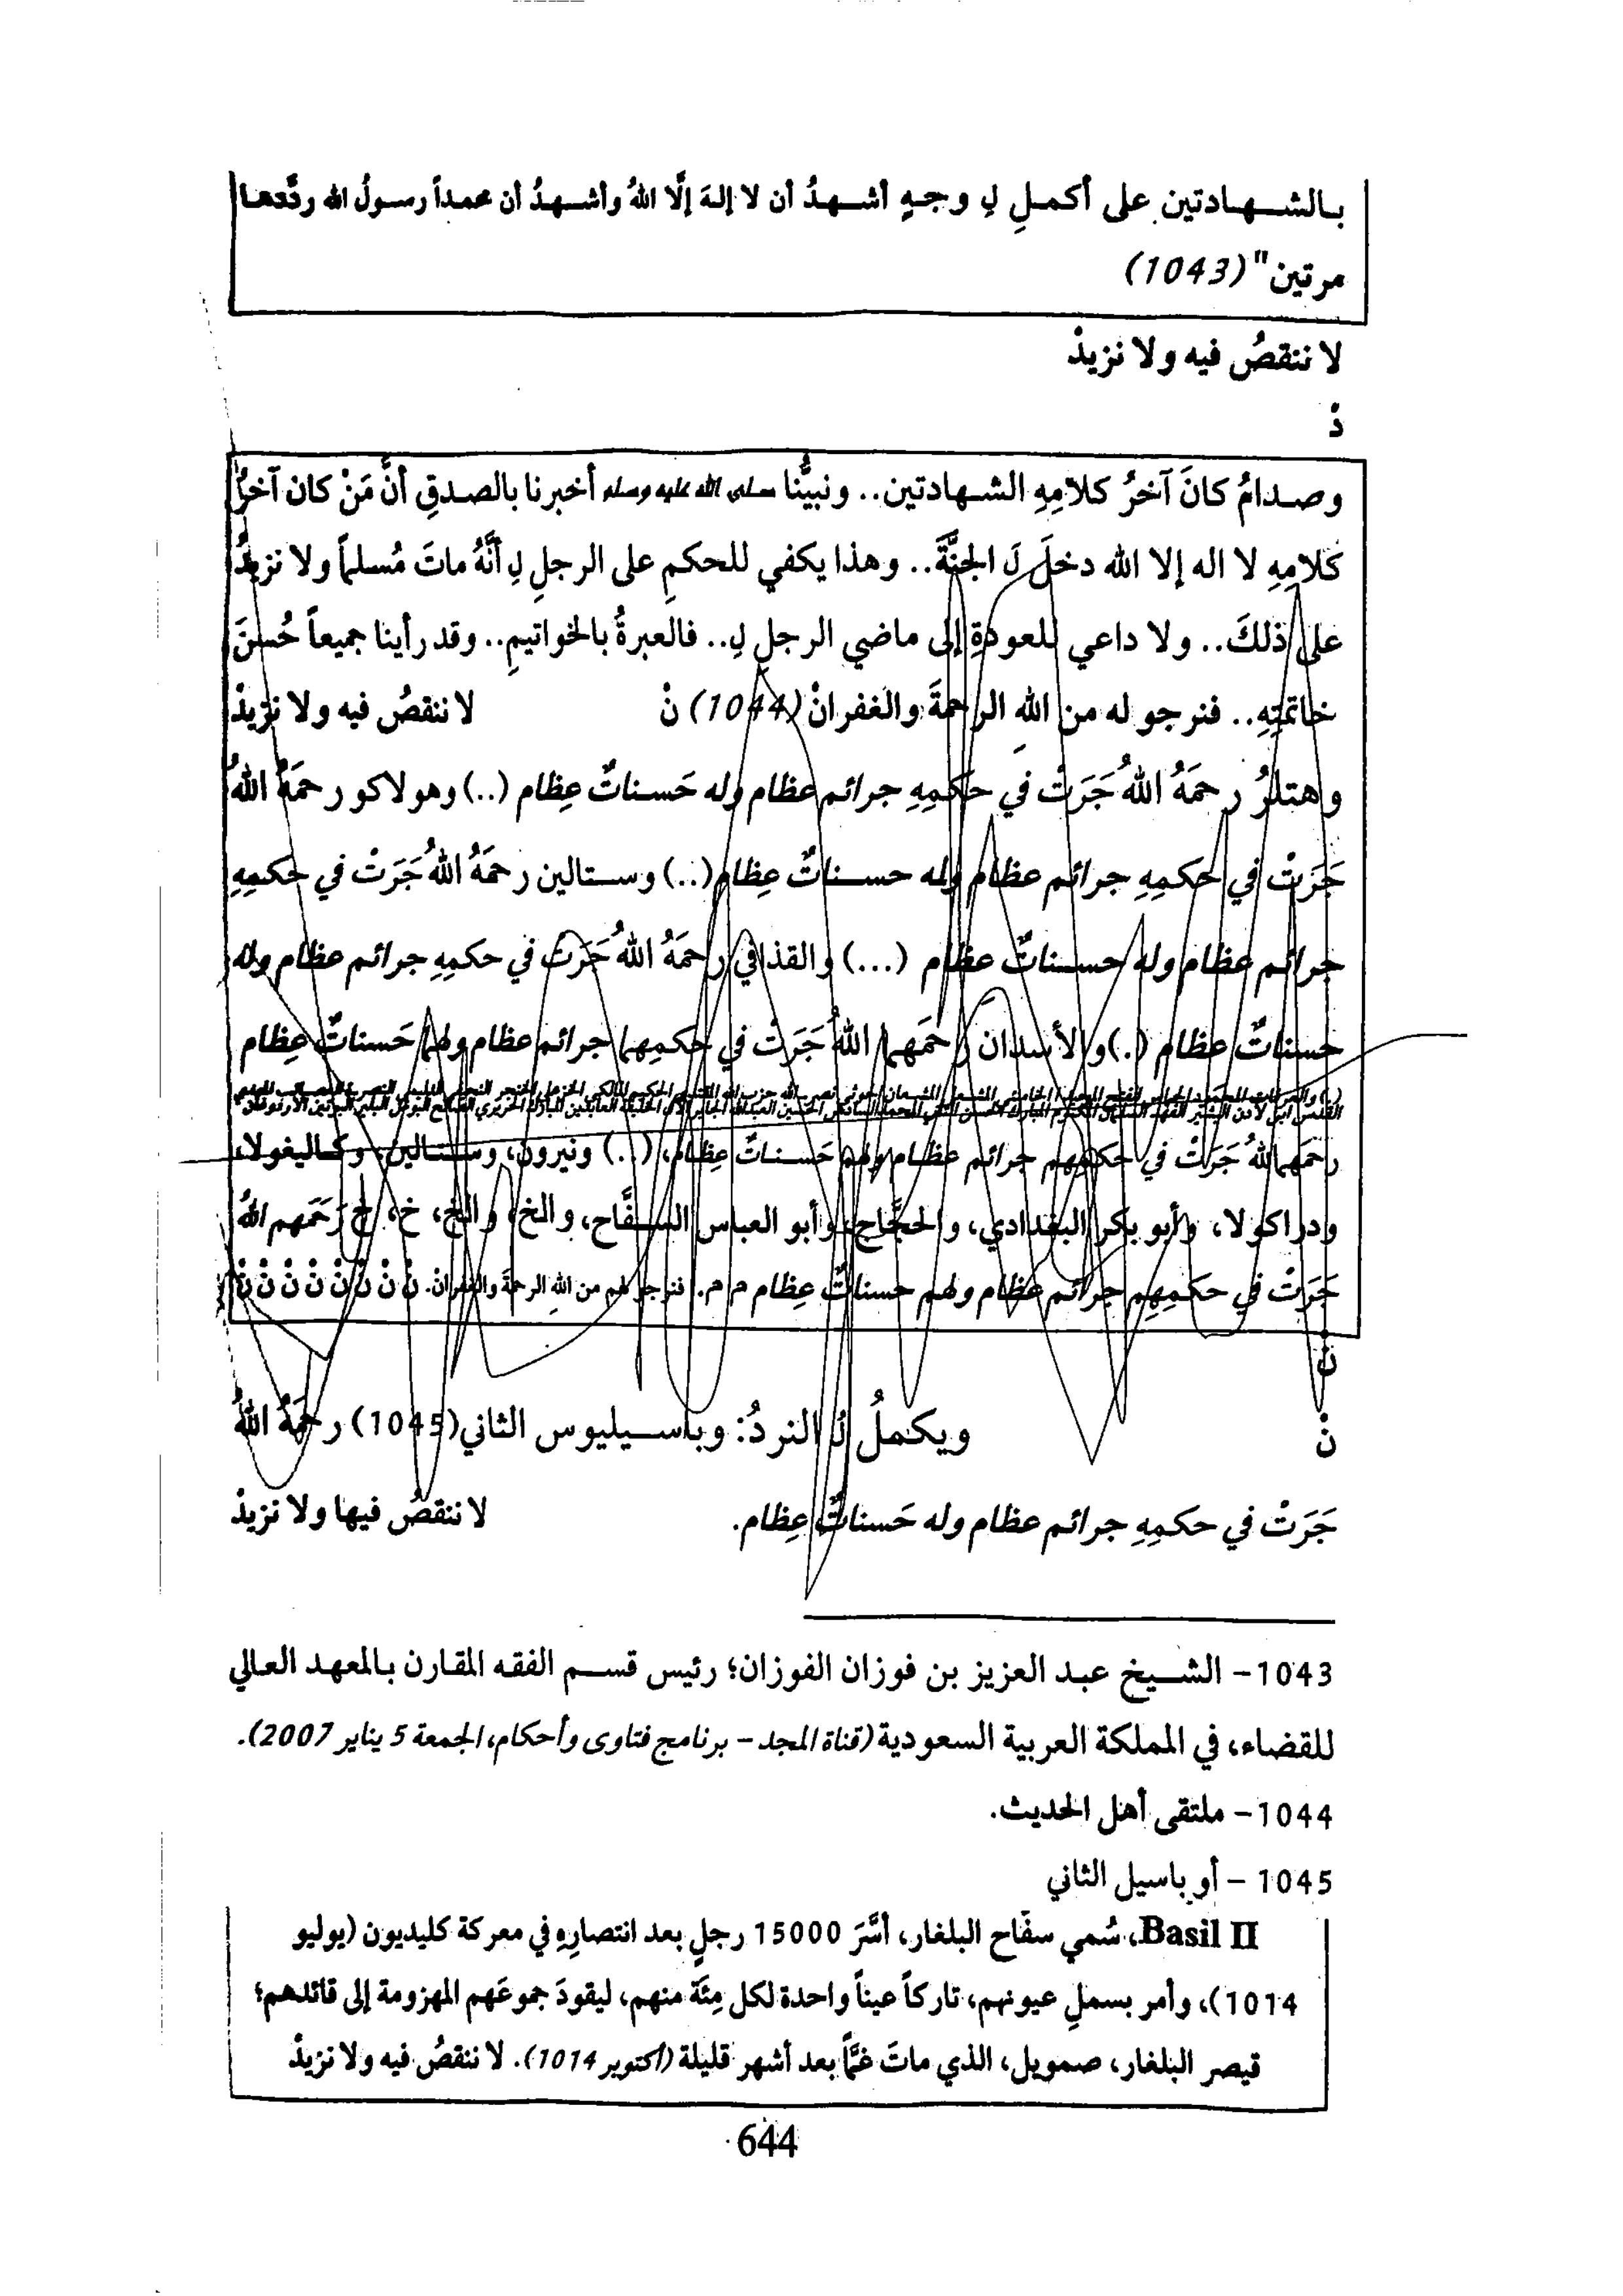 بالشهادتين على أكملِ لِ وجهٍ أشهدُ أن لا إلهَ إلَّا اللهُ وأشهدُ أن محمداً رسولُ الله ردَّدها
مرتين" (1043)
لا ننقصُ فيه ولا نزيدْ
دْ
وصدامُ كانَ آخرُ كلامِهِ الشهادتين.. ونبيُّنا صلى الله عليه وسلم أخبرنا بالصدقِ أنَّ مَنْ كان آخرُ
كلامِهِ لا اله إلا الله دخلَ لَ الجنَّةَ.. وهذا يكفي للحكمِ على الرجلِ لِ أنَّهُ ماتَ مُسلماً ولا نزيدُ
على ذلكَ.. ولا داعي للعودةِ إلى ماضي الرجلِ لِ.. فالعبرةُ بالخواتيمِ.. وقد رأينا جميعاً حُسنَ
خاتمتِهِ.. فنرجو له من اللهِ الرحمةَ والغفرانْ (1044) نْ لا ننقصُ فيه ولا نزيدْ
وهتلرُ رحمَهُ اللهُ جَرَتْ في حكمِهِ جرائم عظام وله حَسناتٌ عِظام (..) وهولاكو رحمَهُ اللهُ
جَرَتْ في حكمِهِ جرائم عظام وله حسناتٌ عِظام (..) وستالين رحمَهُ اللهُ جَرَتْ في حكمِهِ
جرائم عظام وله حسناتٌ عظام (...) والقذافي رحمَهُ اللهُ جَرَتْ في حكمِهِ جرائم عظام وله
حسناتٌ عظام (.) والأسدان رحمَهما اللهُ جَرَتْ في حكمِهما جرائم عظام ولهما حَسناتٌ عِظام
رحمَهم اللهُ جَرَتْ في حكمِهم جرائم عظام ولهم حَسناتٌ عِظام، (..) ونيرون، وستالين، وكاليغولا،
ودراكولا، وأبو بكر البغدادي، والحجَّاج، وأبو العباس السفَّاح، والخ، والخ، خ، خ رَحَمَهم اللهُ
جَرَتْ في حكمِهِم جرائم عظام ولهم حسناتٌ عِظام م م. فنرجو لهم من اللهِ الرحمةَ والغفرانْ. نْ نْ نْ نْ نْ نْ نْ نْ
نْ
نْ ويكملُ لُ النردُ: وباسيليوس الثاني (1045) رحمَهُ اللهُ
جَرَتْ في حكمِهِ جرائم عظام وله حَسناتٌ عِظام. لا ننقصُ فيها ولا نزيدْ
1043 – الشيخ عبد العزيز بن فوزان الفوزان؛ رئيس قسم الفقه المقارن بالمعهد العالي
للقضاء، في المملكة العربية السعودية (قناة المجد – برنامج فتاوى وأحكام، الجمعة 5 يناير 2007).
1044 – ملتقى أهل الحديث.
1045 – أو باسيل الثاني
Basil II، سُمي سفّاح البلغار، أسَّرَ 15000 رجلٍ بعد انتصارِهِ في معركة كليديون (يوليو
1014)، وأمر بسملِ عيونهم، تاركاً عيناً واحدة لكل مِئَة منهم، ليقودَ جموعَهم المهزومة إلى قائدهم؛
قيصر البلغار، صمويل، الذي ماتَ غمَّاً بعد أشهر قليلة (أكتوبر 1014). لا ننقصُ فيه ولا نزيدْ
644